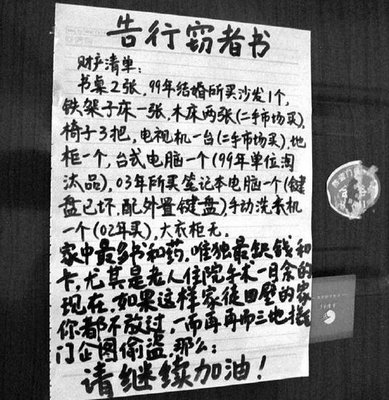 告行窃者书
财产清单:
书桌2张,99年结婚所买沙发1个,
铁架子床一张,木床两张(二手市场买),
椅子3把,电视机一台(二手市场买),地
柜一个,台式电脑一个(99年单位淘
汰品),03年所买笔记本电脑一个(键
盘已坏,配外置键盘)手动洗衣机
一个(02年买),大衣柜无。
家中最多书和药,唯独最缺钱和
卡,尤其是老人住院手术一月余的
现在,如果这样家徒四壁的家
你都不放过,一而再再而三地撬
门企图偷盗,那么:
请继续加油!